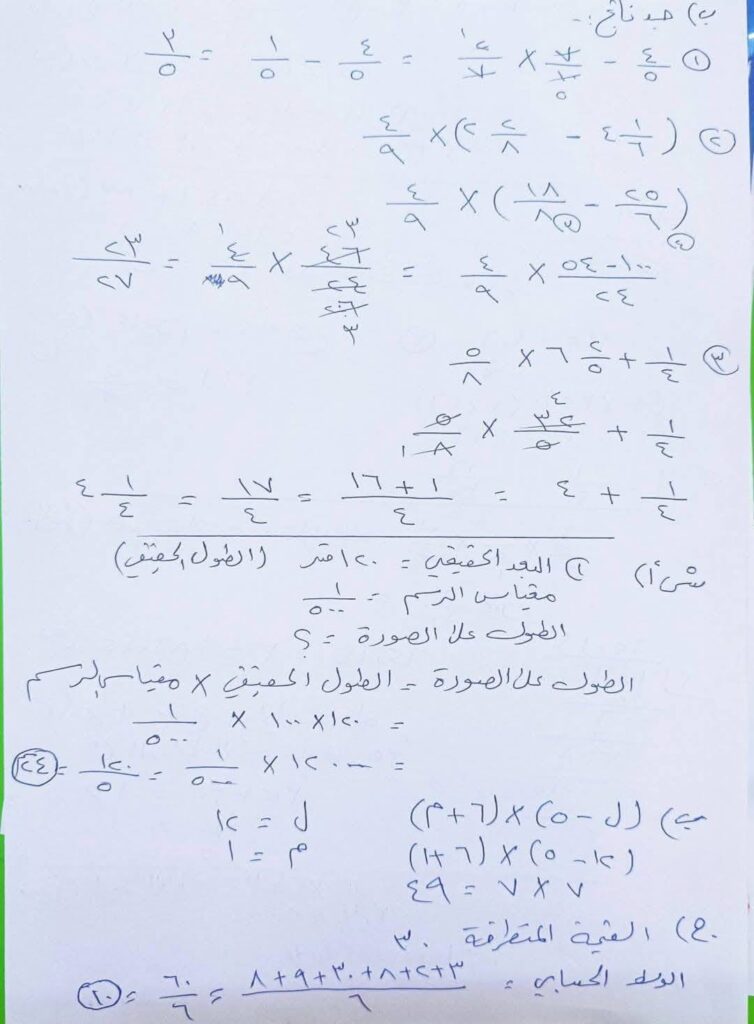 ب) جد ناتج :-
① ٤/٥ - ٧/١٠ × ٢/٧ = ٤/٥ - ١/٥ = ٣/٥
② (٤ ١/٦ - ٢ ٢/٨) × ٤/٩
(٢٥/٦ - ١٨/٨) × ٤/٩
(١٠٠-٥٤)/٢٤ × ٤/٩ = ٤٦/٢٤ × ٤/٩ = ٢٣/٢٧
③ ١/٤ + ٦ ٢/٥ × ٥/٨
١/٤ + ٣٢/٥ × ٥/٨
١/٤ + ٤ = (١ + ١٦)/٤ = ١٧/٤ = ٤ ١/٤
س أ) ١) البعد الحقيقي = ١٢٠ متر (الطول الحقيقي)
مقياس الرسم = ١/٥٠٠
الطول على الصورة = ؟
الطول على الصورة = الطول الحقيقي × مقياس الرسم
= ١٢٠×١٠٠ × ١/٥٠٠
= ١٢٠٠٠ × ١/٥٠٠ = ١٢٠/٥ = ٢٤
ب) (ل - ٥)×(٦+م) ل = ١٢
(١٢ - ٥)×(٦+١) م = ١
٧ × ٧ = ٤٩
ج) القيمة المتطرفة ٣٠
الوسط الحسابي = (٣+٢+٨+٣٠+٩+٨)/٦ = ٦٠/٦ = ١٠